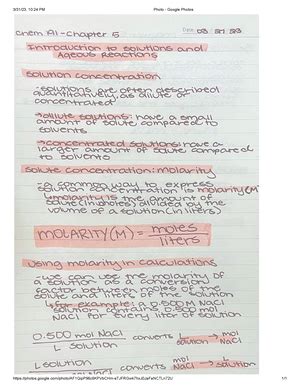 3/31/23, 10:24 PM
Photo - Google Photos
Chem 1A1 - Chapter 5
Date
Introduction to solutions and
Aqueous Reactions
Solution concentration
- solutions are often described
quantitatively, as dilute or
concentrated
→ dilute solutions: have a small
amount of solute compared to
solvents
→ concentrated solutions: have a
larger amount of solute compared
to solvents
Solute Concentration: Molarity
- a common way to express
solution concentration is molarity (M)
↳ molarity is the amount of
solute (in moles) divided by the
volume of a solution (in liters)
MOLARITY (M) = moles
liters
Using molarity in calculations
- we can use the molarity of
a solution as a conversion
factor between moles of the
solute and liters of the solution
↳ for example: a 0.500 M NaCl
solution contains 0.500 mol
NaCl for every liter of solution
0.500 mol NaCl converts L → mol
L solution solution NaCl
L solution converts mol → L
NaCl solution
1/1